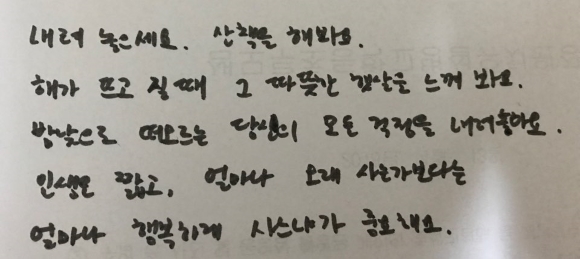 내려 놓으세요. 산책을 해봐요.
해가 뜨고 질 때 그 따뜻한 햇살을 느껴 봐요.
밤낮으로 떠오르는 당신의 모든 걱정을 내려놓아요.
인생은 짧고, 얼마나 오래 사는가보다는
얼마나 행복하게 사느냐가 중요해요.